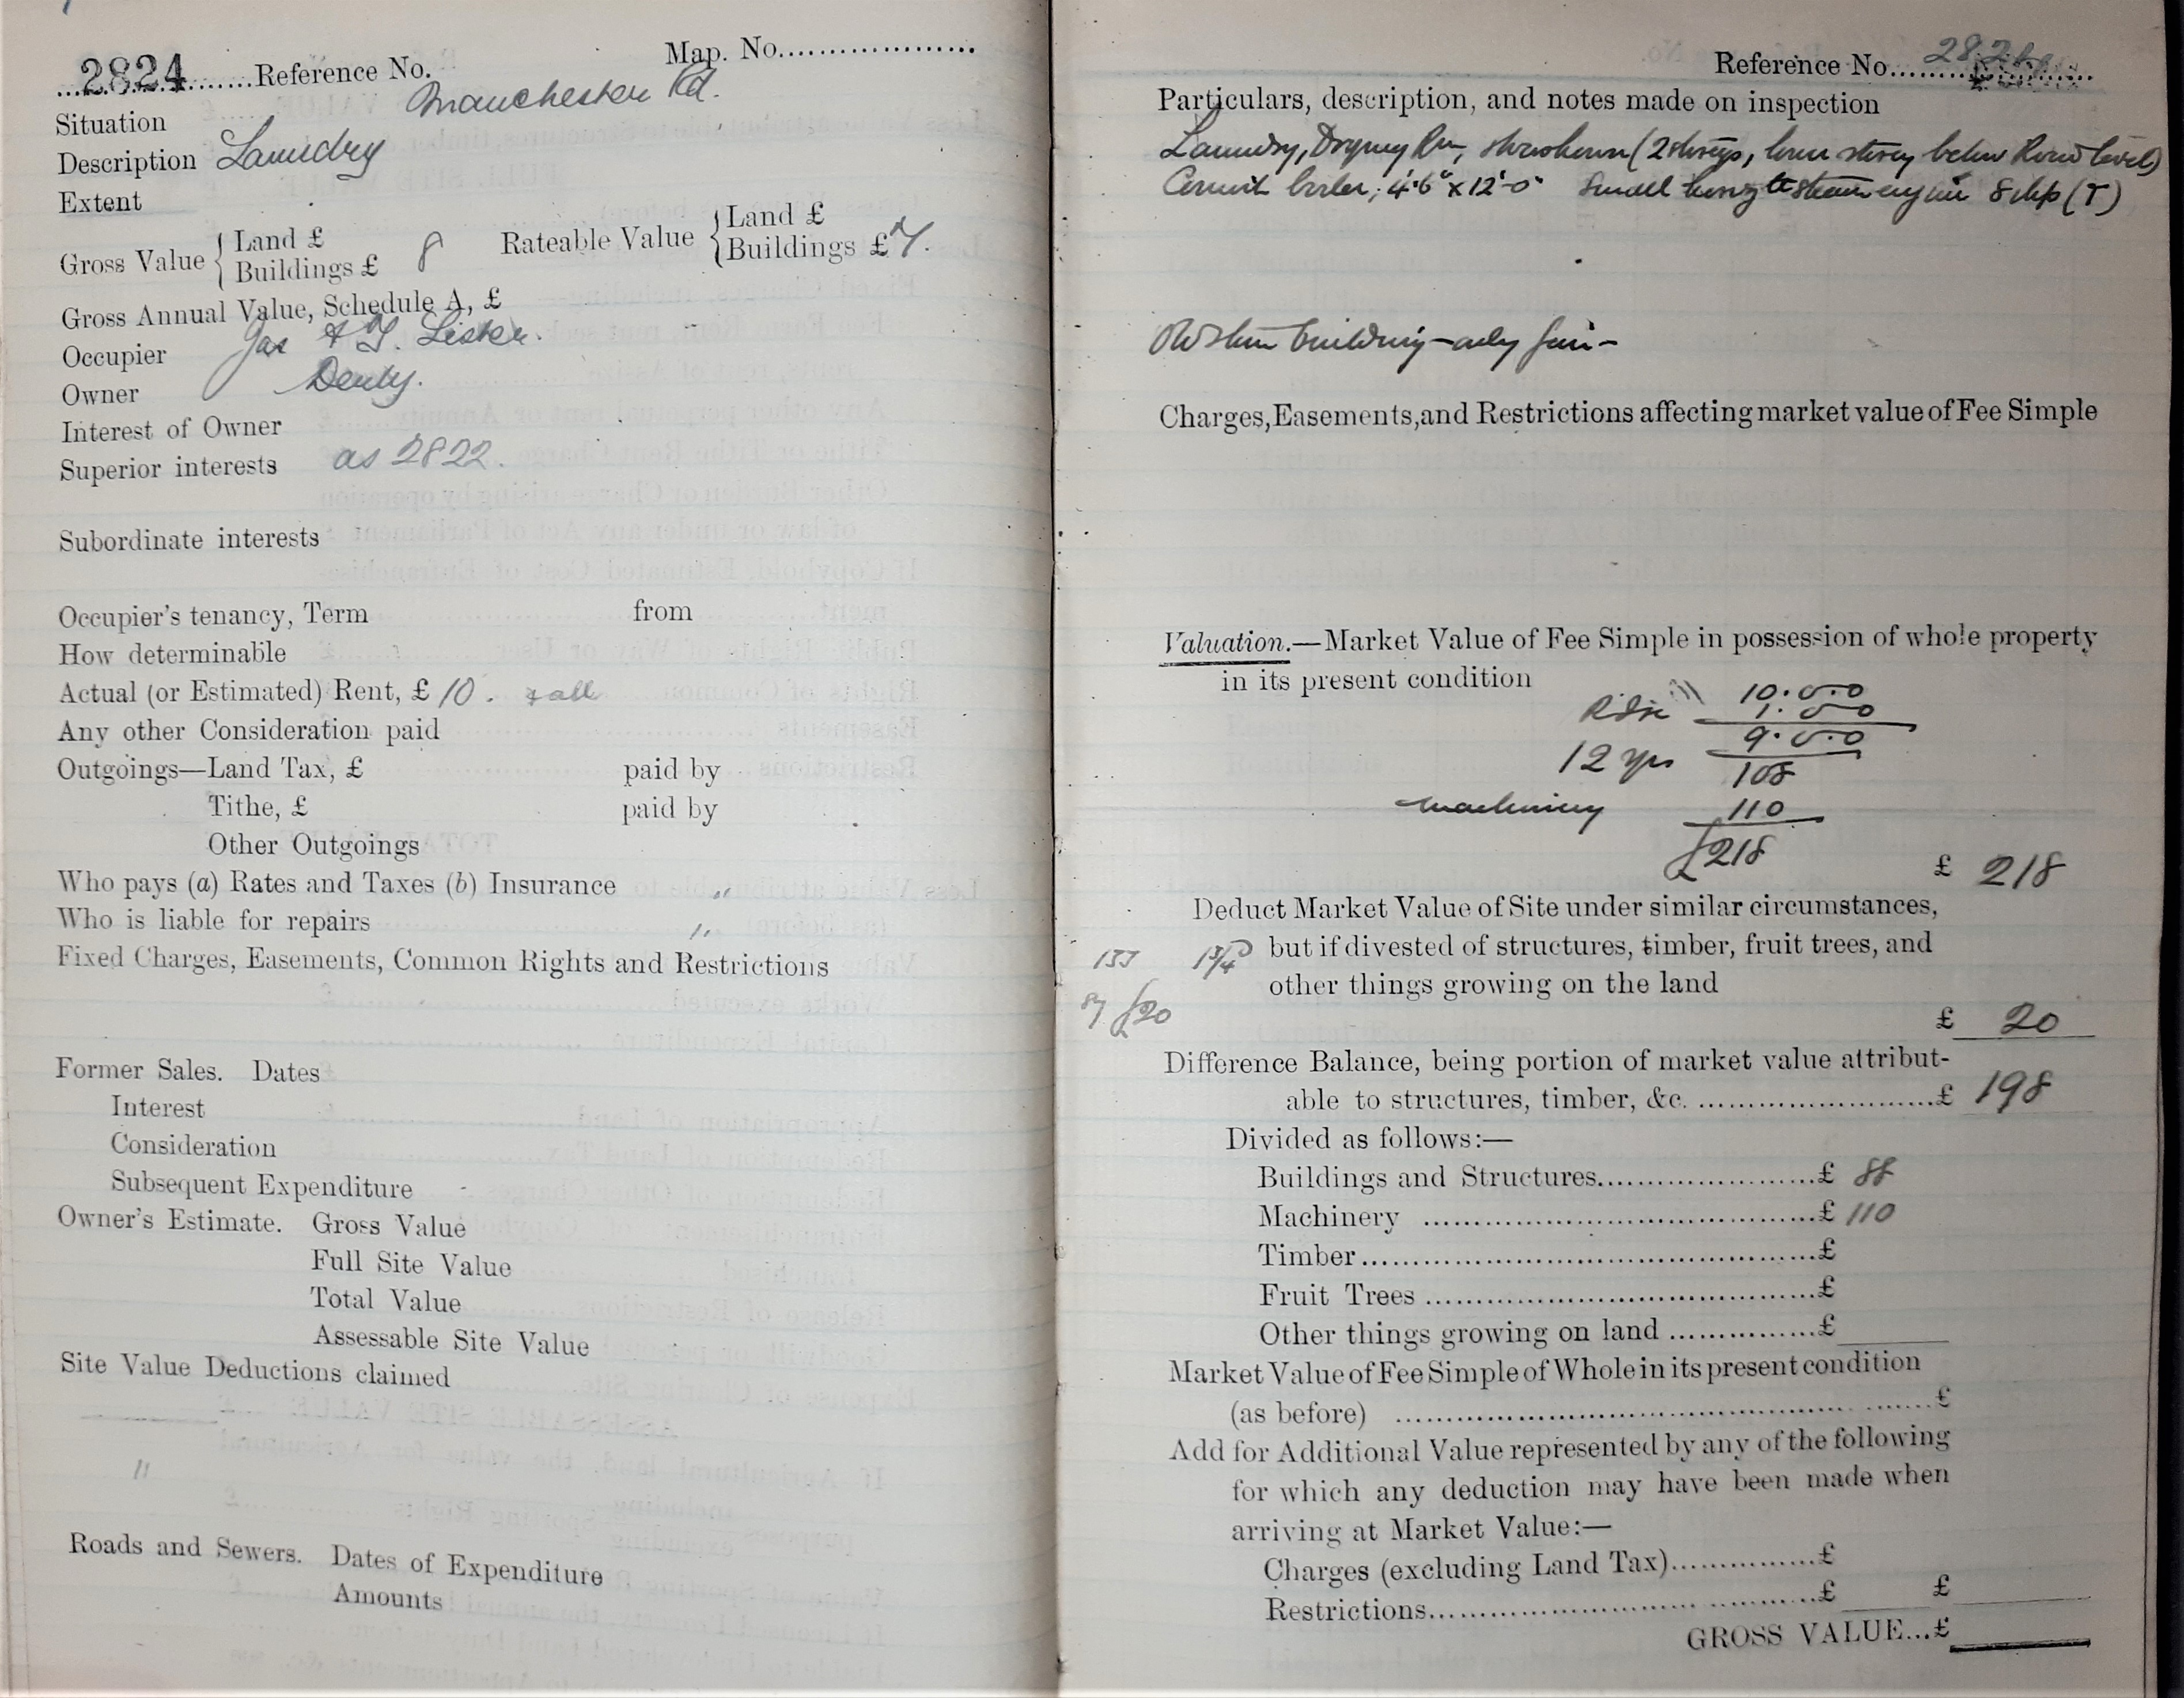 2824 Reference No. Map. No.
Situation Manchester Rd.
Description Laundry
Extent
Gross Value { Land £
Buildings £ 8
Rateable Value { Land £
Buildings £ 7.
Gross Annual Value, Schedule A, £
Occupier Jas & J. Lister.
Owner Denby.
Interest of Owner
Superior interests as 2822.
Subordinate interests
Occupier's tenancy, Term from
How determinable
Actual (or Estimated) Rent, £ 10.
Any other Consideration paid
Outgoings—Land Tax, £ paid by
Tithe, £ paid by
Other Outgoings
Who pays (a) Rates and Taxes (b) Insurance "
Who is liable for repairs "
Fixed Charges, Easements, Common Rights and Restrictions
Former Sales. Dates
Interest
Consideration
Subsequent Expenditure
Owner's Estimate. Gross Value
Full Site Value
Total Value
Assessable Site Value
Site Value Deductions claimed
"
Roads and Sewers. Dates of Expenditure
Amounts
Reference No. 2824
Particulars, description, and notes made on inspection
Laundry, Drying Rm, (2 storeys, lower storey below Road level)
boiler, 4'·6" x 12'-0" Small steam engine 8 (T)
building - only fair -
Charges, Easements, and Restrictions affecting market value of Fee Simple
Valuation.—Market Value of Fee Simple in possession of whole property
in its present condition
10.0.0
1.0.0
9.0.0
12 yrs 108
machinery 110
£218
£ 218
Deduct Market Value of Site under similar circumstances,
133 but if divested of structures, timber, fruit trees, and
other things growing on the land
£20
£ 20
Difference Balance, being portion of market value attribut-
able to structures, timber, &c. £ 198
Divided as follows:—
Buildings and Structures £ 88
Machinery £ 110
Timber £
Fruit Trees £
Other things growing on land £
Market Value of Fee Simple of Whole in its present condition
(as before) £
Add for Additional Value represented by any of the following
for which any deduction may have been made when
arriving at Market Value:—
Charges (excluding Land Tax) £
Restrictions £ £
GROSS VALUE...£